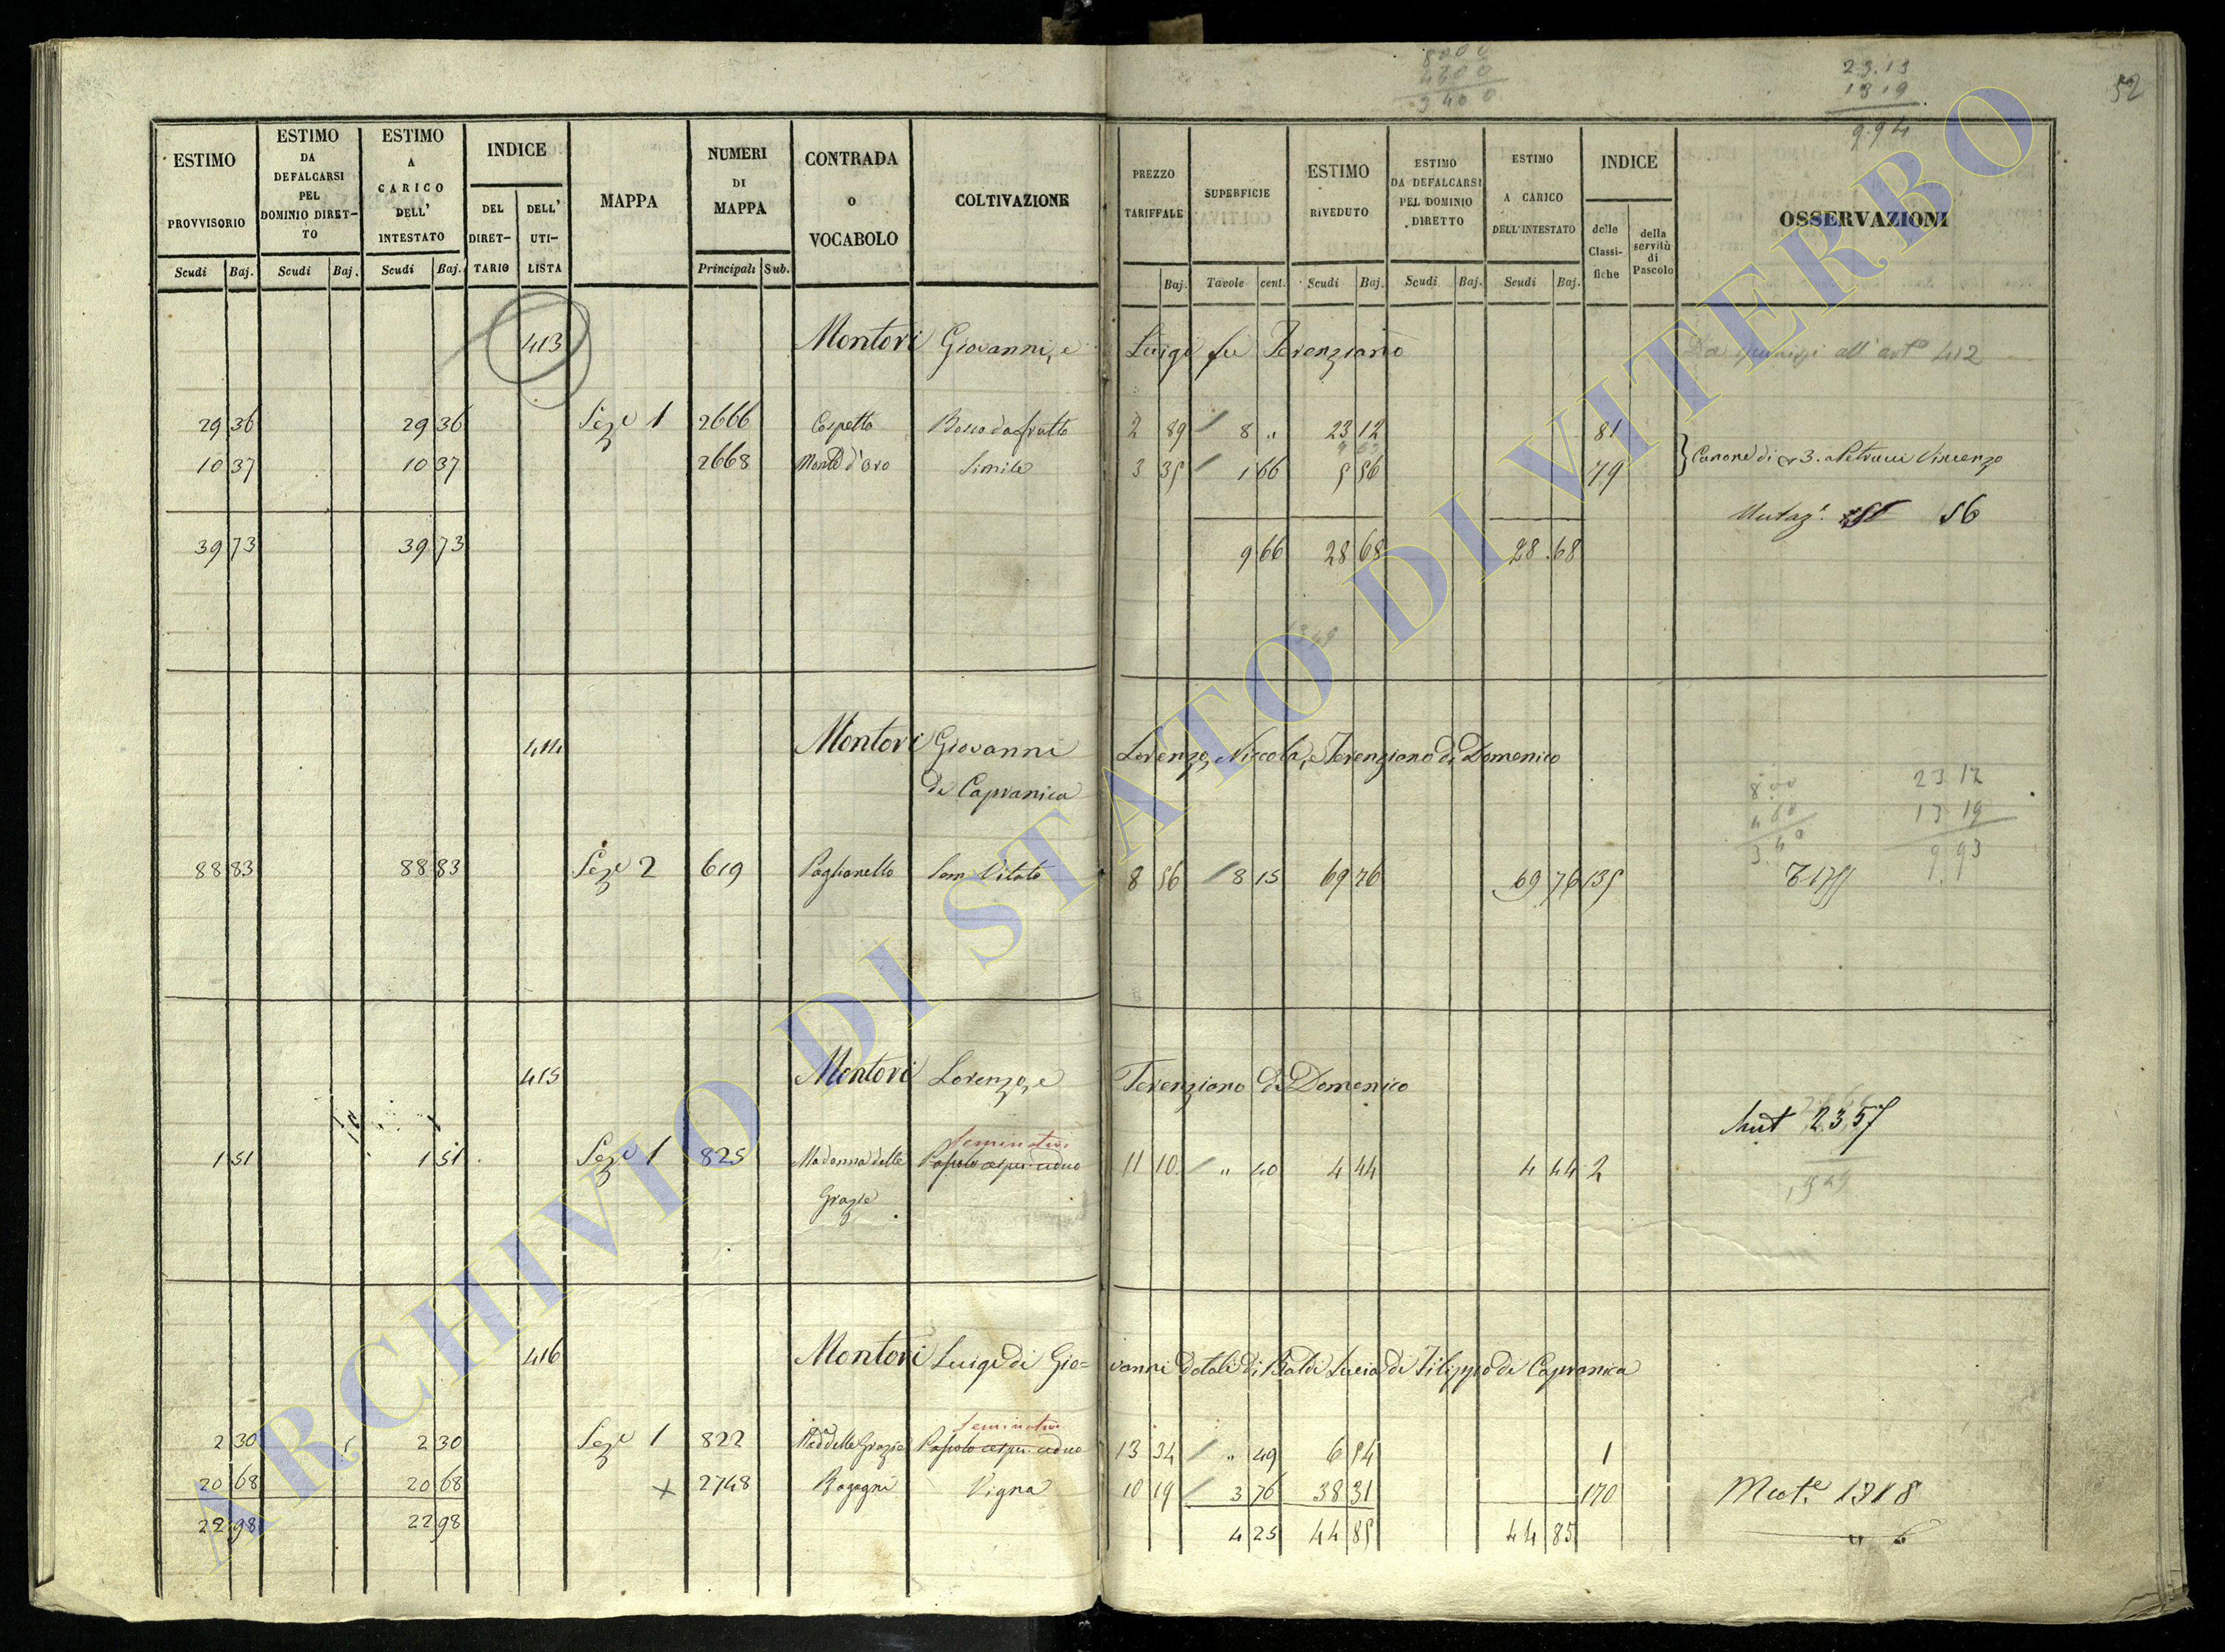 8000
4600
3400
23.13
13 19
9.94
52
ESTIMO PROVVISORIO
ESTIMO DA DEFALCARSI PEL DOMINIO DIRET-TO
ESTIMO A CARICO DELL' INTESTATO
INDICE
DEL DIRET-TARIO
DELL' UTI-LISTA
MAPPA
NUMERI DI MAPPA
CONTRADA o VOCABOLO
COLTIVAZIONE
PREZZO TARIFFALE
SUPERFICIE
ESTIMO RIVEDUTO
ESTIMO DA DEFALCARSI PEL DOMINIO DIRETTO
ESTIMO A CARICO DELL'INTESTATO
INDICE
delle Classi-fiche
della servitù di Pascolo
OSSERVAZIONI
Scudi Baj. Scudi Baj. Scudi Baj. Principali Sub. Baj. Tavole cent. Scudi Baj. Scudi Baj. Scudi Baj.
413 Montori Giovanni, e Luigi fu Terenziano all'arto 412
29 36 29 36 Seze 1 2666 Cospetto Bosco da frutto 2 89 8 „ 23 12 81
10 37 10 37 2668 Monte d'oro Simile 3 35 1 66 5 56 79 Canone di 3. a Petrucci Vincenzo
Mutaz. 56
39 73 39 73 9 66 28 68 28.68
414 Montori Giovanni Lorenzo, Niccola, e Terenziano di Domenico
da Capranica
800
460
3.40
23 12
13 19
9.93
88 83 88 83 Seze 2 619 Paglianello Sem Vitato 8 56 8 15 69 76 69 76 135
415 Montori Lorenzo, e Terenziano di Domenico
Mut 2357
Seminativo
1 51 1 51 Seze 1 825 Madonna delle Pascolo cespu. ceduo 11 10 „ 40 4 44 4 44 2
Grazie
416 Montori Luigi di Gio= vanni Dotali di Baldi Lucia di Filippo da Capranica
Seminativo
2 30 2 30 Seze 1 822 Mad delle Grazie Pascolo cespu. ceduo 13 34 „ 49 6 54 1
20 68 20 68 x 2748 Vigna 10 19 3 76 38 31 170 Mut.e 1318
22 98 22 98 4 25 44 85 44 85
ARCHIVIO DI STATO DI VITERBO